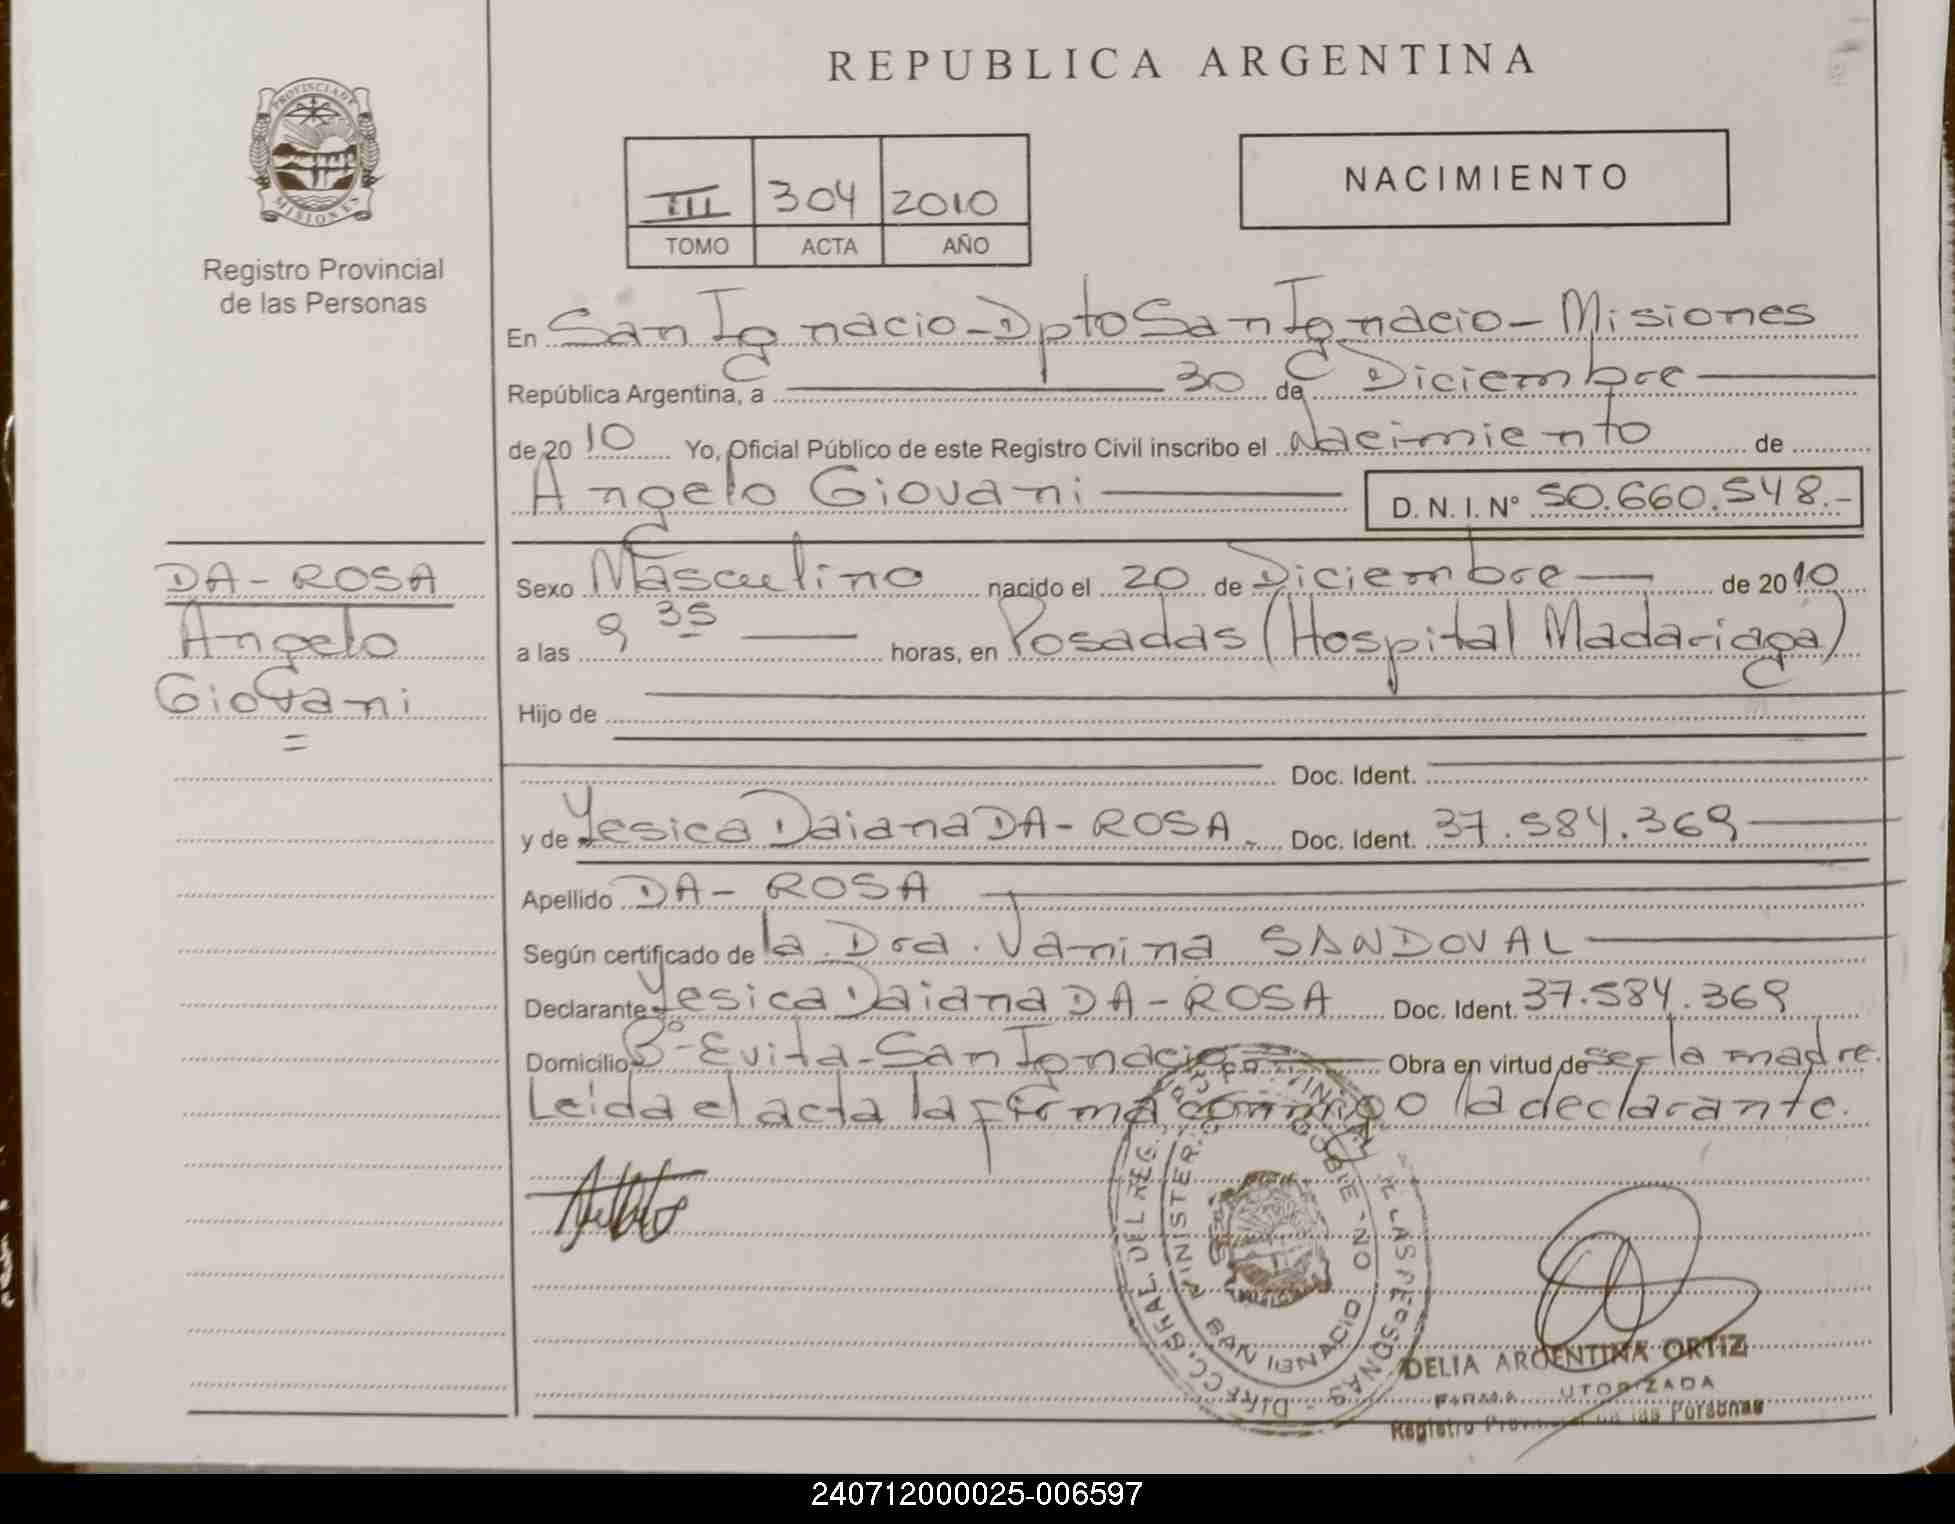 REPUBLICA ARGENTINA
PROVINCIA DE
MISIONES
Registro Provincial
de las Personas
III 304 2010
TOMO ACTA AÑO
NACIMIENTO
En San Ignacio - Dpto San Ignacio - Misiones
República Argentina, a 30 de Diciembre
de 2010 Yo, Oficial Público de este Registro Civil inscribo el Nacimiento de
Angelo Giovani D. N. I. Nº 50.660.548.-
DA - ROSA
Angelo
Giovani
Sexo Masculino nacido el 20 de Diciembre de 2010
a las 9 35 horas, en Posadas (Hospital Madariaga)
Hijo de
Doc. Ident.
y de Yesica Daiana DA - ROSA. Doc. Ident. 37.584.369
Apellido DA - ROSA
Según certificado de la Dra. Vanina SANDOVAL
Declarante Yesica Daiana DA - ROSA Doc. Ident. 37.584.369
Domicilio Bº Evita - San Ignacio Obra en virtud de ser la madre.
Leida el acta la firma conmigo la declarante.
DIRECC. GRAL. DEL REG. LAS PERSONAS
MINISTER. GOBIE NO
SAN IGNACIO
DELIA ARGENTINA ORTIZ
FIRMA UTORIZADA
Registro las Personas
240712000025-006597